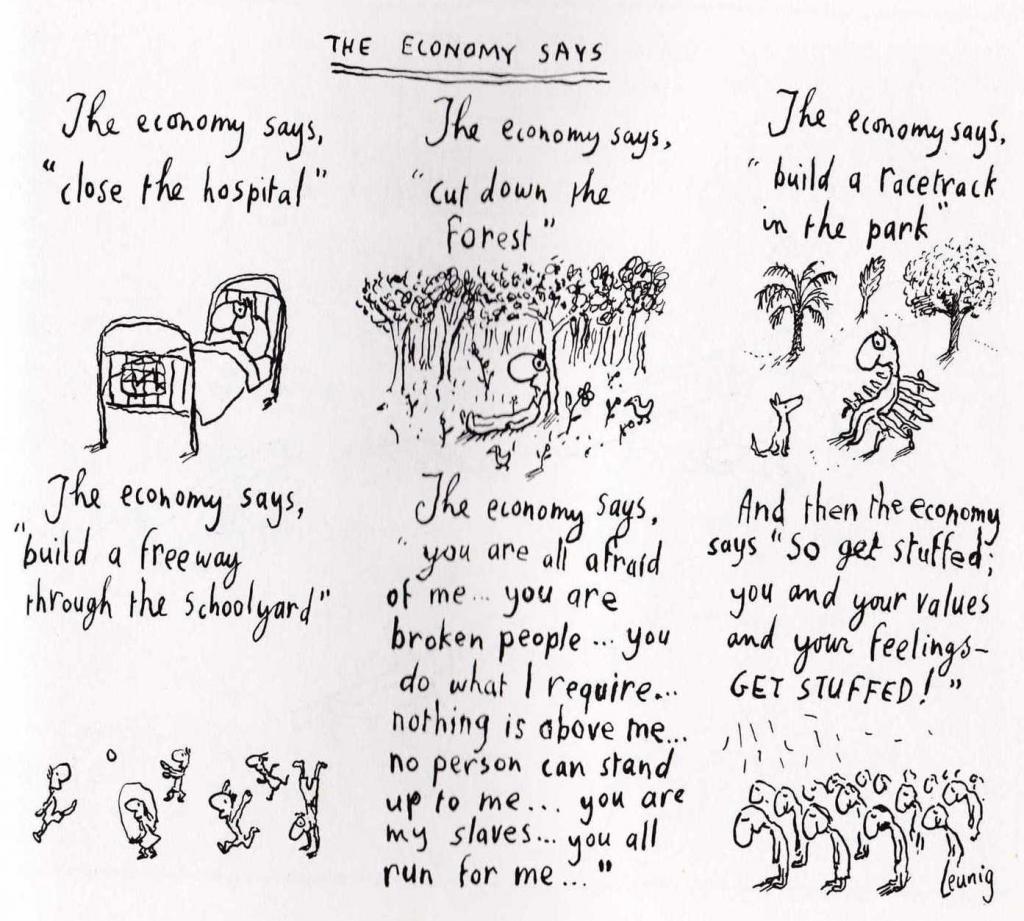 THE ECONOMY SAYS
The economy says,
"close the hospital"
The economy says,
"cut down the
forest"
The economy says,
"build a racetrack
in the park"
The economy says,
"build a freeway
through the schoolyard"
The economy says,
"you are all afraid
of me... you are
broken people... you
do what I require...
nothing is above me...
no person can stand
up to me... you are
my slaves... you all
run for me..."
And then the economy
says "So get stuffed;
you and your values
and your feelings-
GET STUFFED!"
Leunig